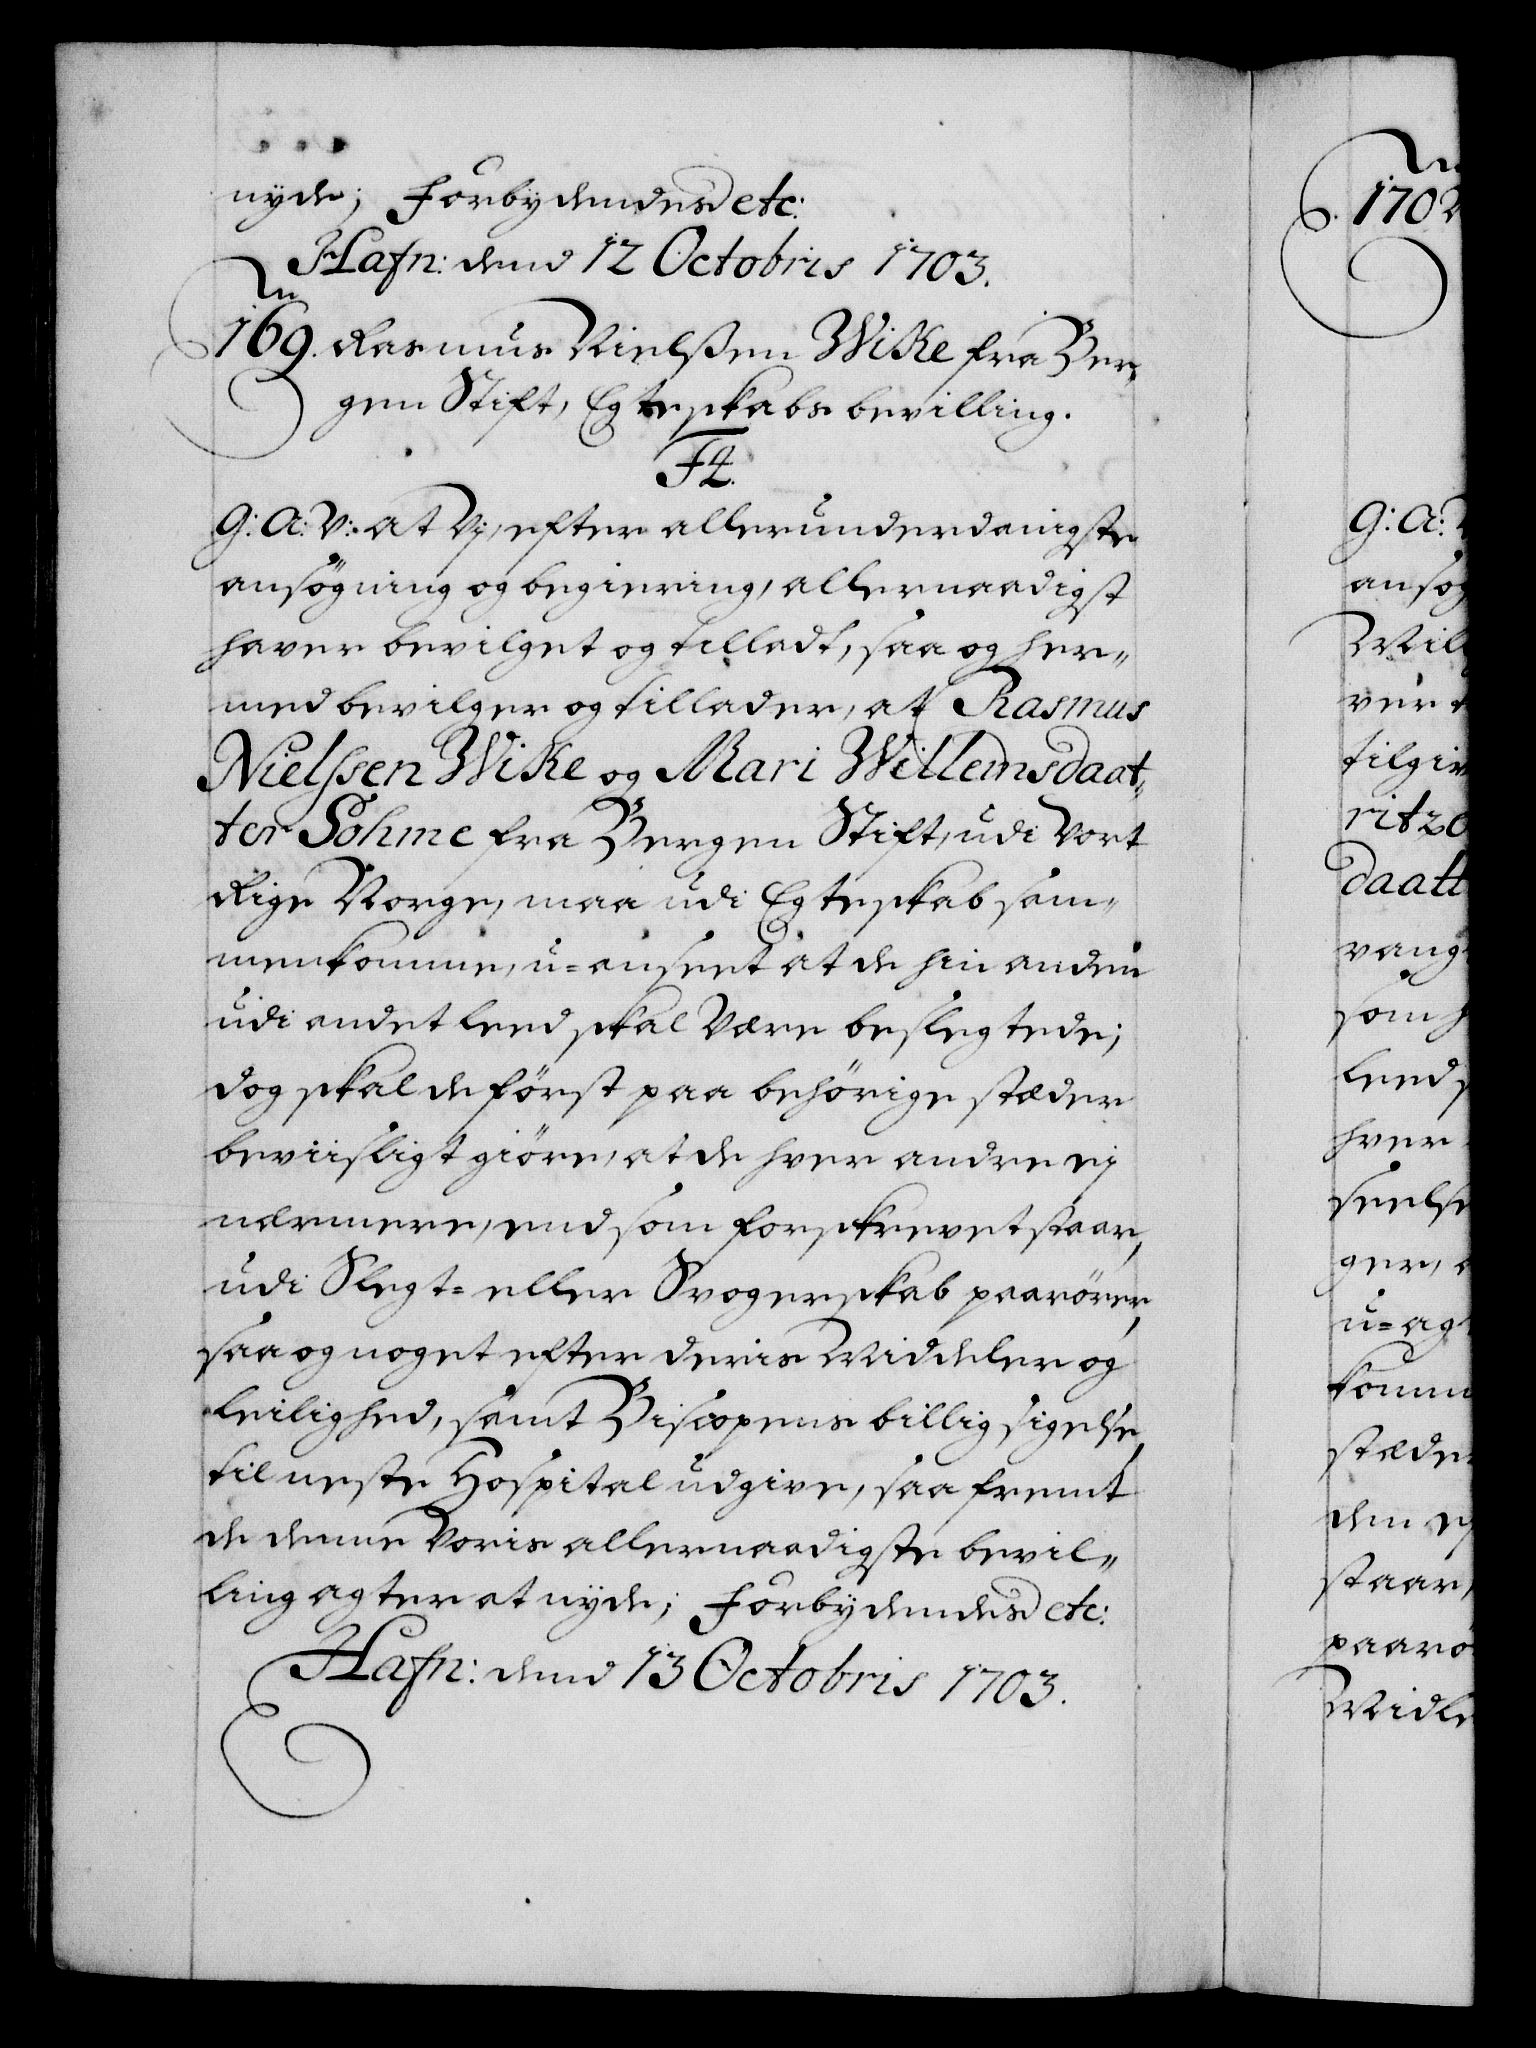 nyde; Forbydendes etc:
Hafn: dend 12 Octobris 1703.
169. Rasmus Nielßen Wike fra Ber,,
gen Stift, Egteskabs bevilling.
F4.
G: A: V: at Vj, efter allerunderdanigste
ansögning og begiering, allernaadigst
haver bevilget og tilladt, saa og her,,
med bevilger og tillader, at Rasmus
Nielssen Wike og Mari Willemsdaat,,
ter Sohme fra Bergen Stift, udi Vort
Rige Norge, maa udi Egteskab sam,,
menkomme, u=anseet at de hin anden
udi andet leed skal Være beslegtede;
dog skal de först paa behörige stæder
beviisligt giöre, at de hver andre ej
nærmere, end som forskrevet staar,
udi Slegt= eller Svogerskab paarörer,
saa og noget efter deris Middeler og
leilighed, samt Biscopens billig sigelse,
til neste Hospital udgive, saa fremt
de denne Voris allernaadigste bevil,,
ling agter at nyde; Forbydendes etc:
Hafn: dend 13 Octobris 1703.
170
G: A:
ansög
Mil
ver
tilgiv
ritzo
daatt
vang
som
leed
hver
seelse
ger,
u=ag
komm
stæder
dem ej
staar,
paarö
Midle